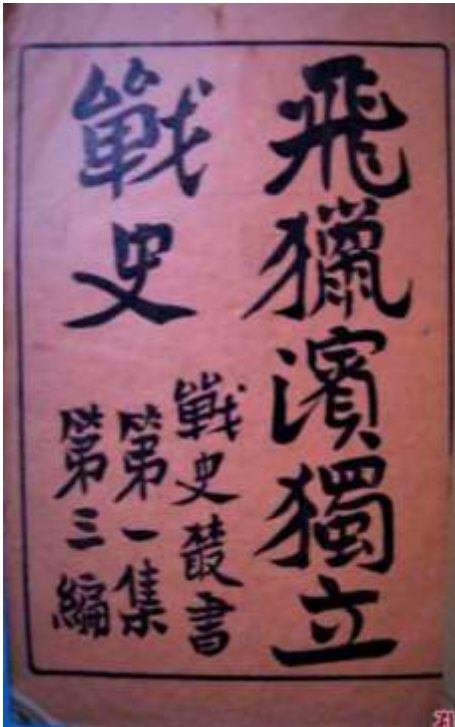 飛獵濱獨立
戰史
戰史叢書
第一集
第三編